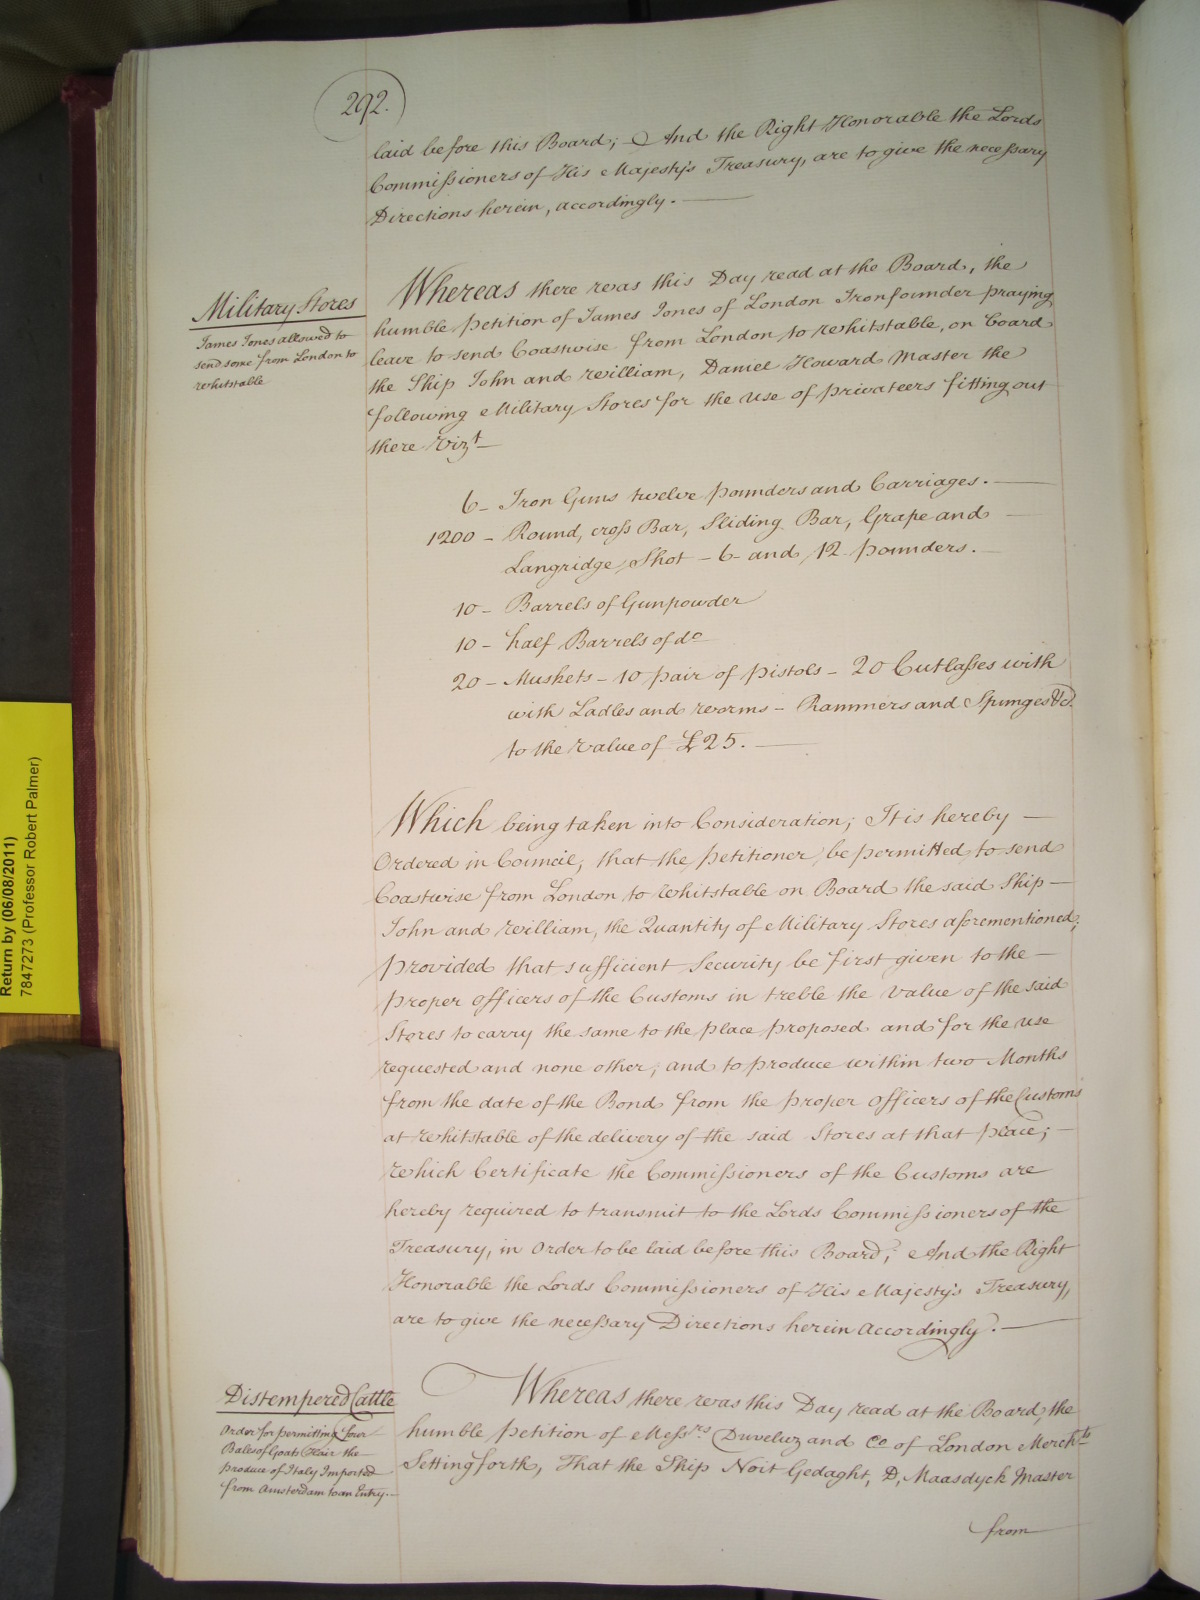 292.
laid before this Board; And the Right Honorable the Lords
Commissioners of His Majesty's Treasury, are to give the necessary
Directions herein, accordingly.
Military Stores
James Jones allowed to
send some from London to
Whitstable
Whereas there was this Day read at the Board, the
humble petition of James Jones of London Ironfounder praying
leave to send Coastwise from London to Whitstable, on board
the Ship John and William, Daniel Howard Master the
following Military Stores for the use of privateers fitting out
there Vizt
6 - Iron Guns twelve pounders and Carriages.
1200 - Round, cross Bar, Sliding Bar, Grape and
Langridge Shot - 6 and 12 pounders.
10 - Barrels of Gunpowder
10 - half Barrels of do
20 - Muskets - 10 pair of pistols - 20 Cutlasses with
with Ladles and worms - Rammers and Spunges &c.
to the value of £25.
Which being taken into Consideration; It is hereby
Ordered in Council, that the petitioner be permitted to send
Coastwise from London to Whitstable on Board the said Ship
John and William, the Quantity of Military Stores aforementioned;
provided that sufficient Security be first given to the
proper officers of the Customs in treble the value of the said
Stores to carry the same to the place proposed and for the use
requested and none other; and to produce within two Months
from the date of the Bond from the proper officers of the Customs
at Whitstable of the delivery of the said Stores at that place;
which Certificate the Commissioners of the Customs are
hereby required to transmit to the Lords Commissioners of the
Treasury, in Order to be laid before this Board; And the Right
Honorable the Lords Commissioners of His Majesty's Treasury,
are to give the necessary Directions herein Accordingly.
Distempered Cattle
Order for permitting four
Bales of Goats Hair the
produce of Italy Imported
from Amsterdam to an Entry.
Whereas there was this Day read at the Board, the
humble petition of Messrs Duveluz and Co of London Merchts
Setting forth, That the Ship Noit Gedaght, D, Maasdyck Master
from
Return by (06/08/2011)
7847273 (Professor Robert Palmer)